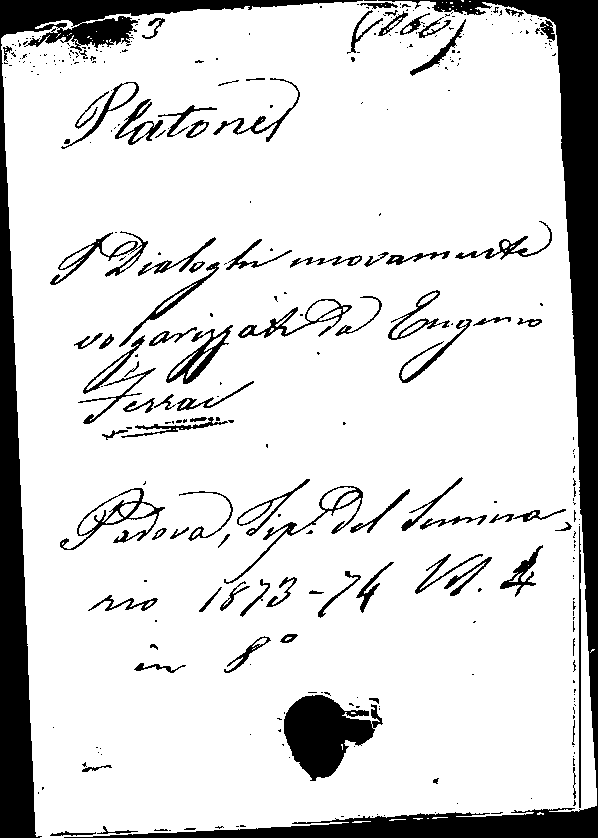 3 (1060)
Platone
I Dialoghi nuovamente
volgarizzati da Eugenio
Ferrai
Padova, Tip. del Semina,
rio 1873-74 Vol.
in 8°